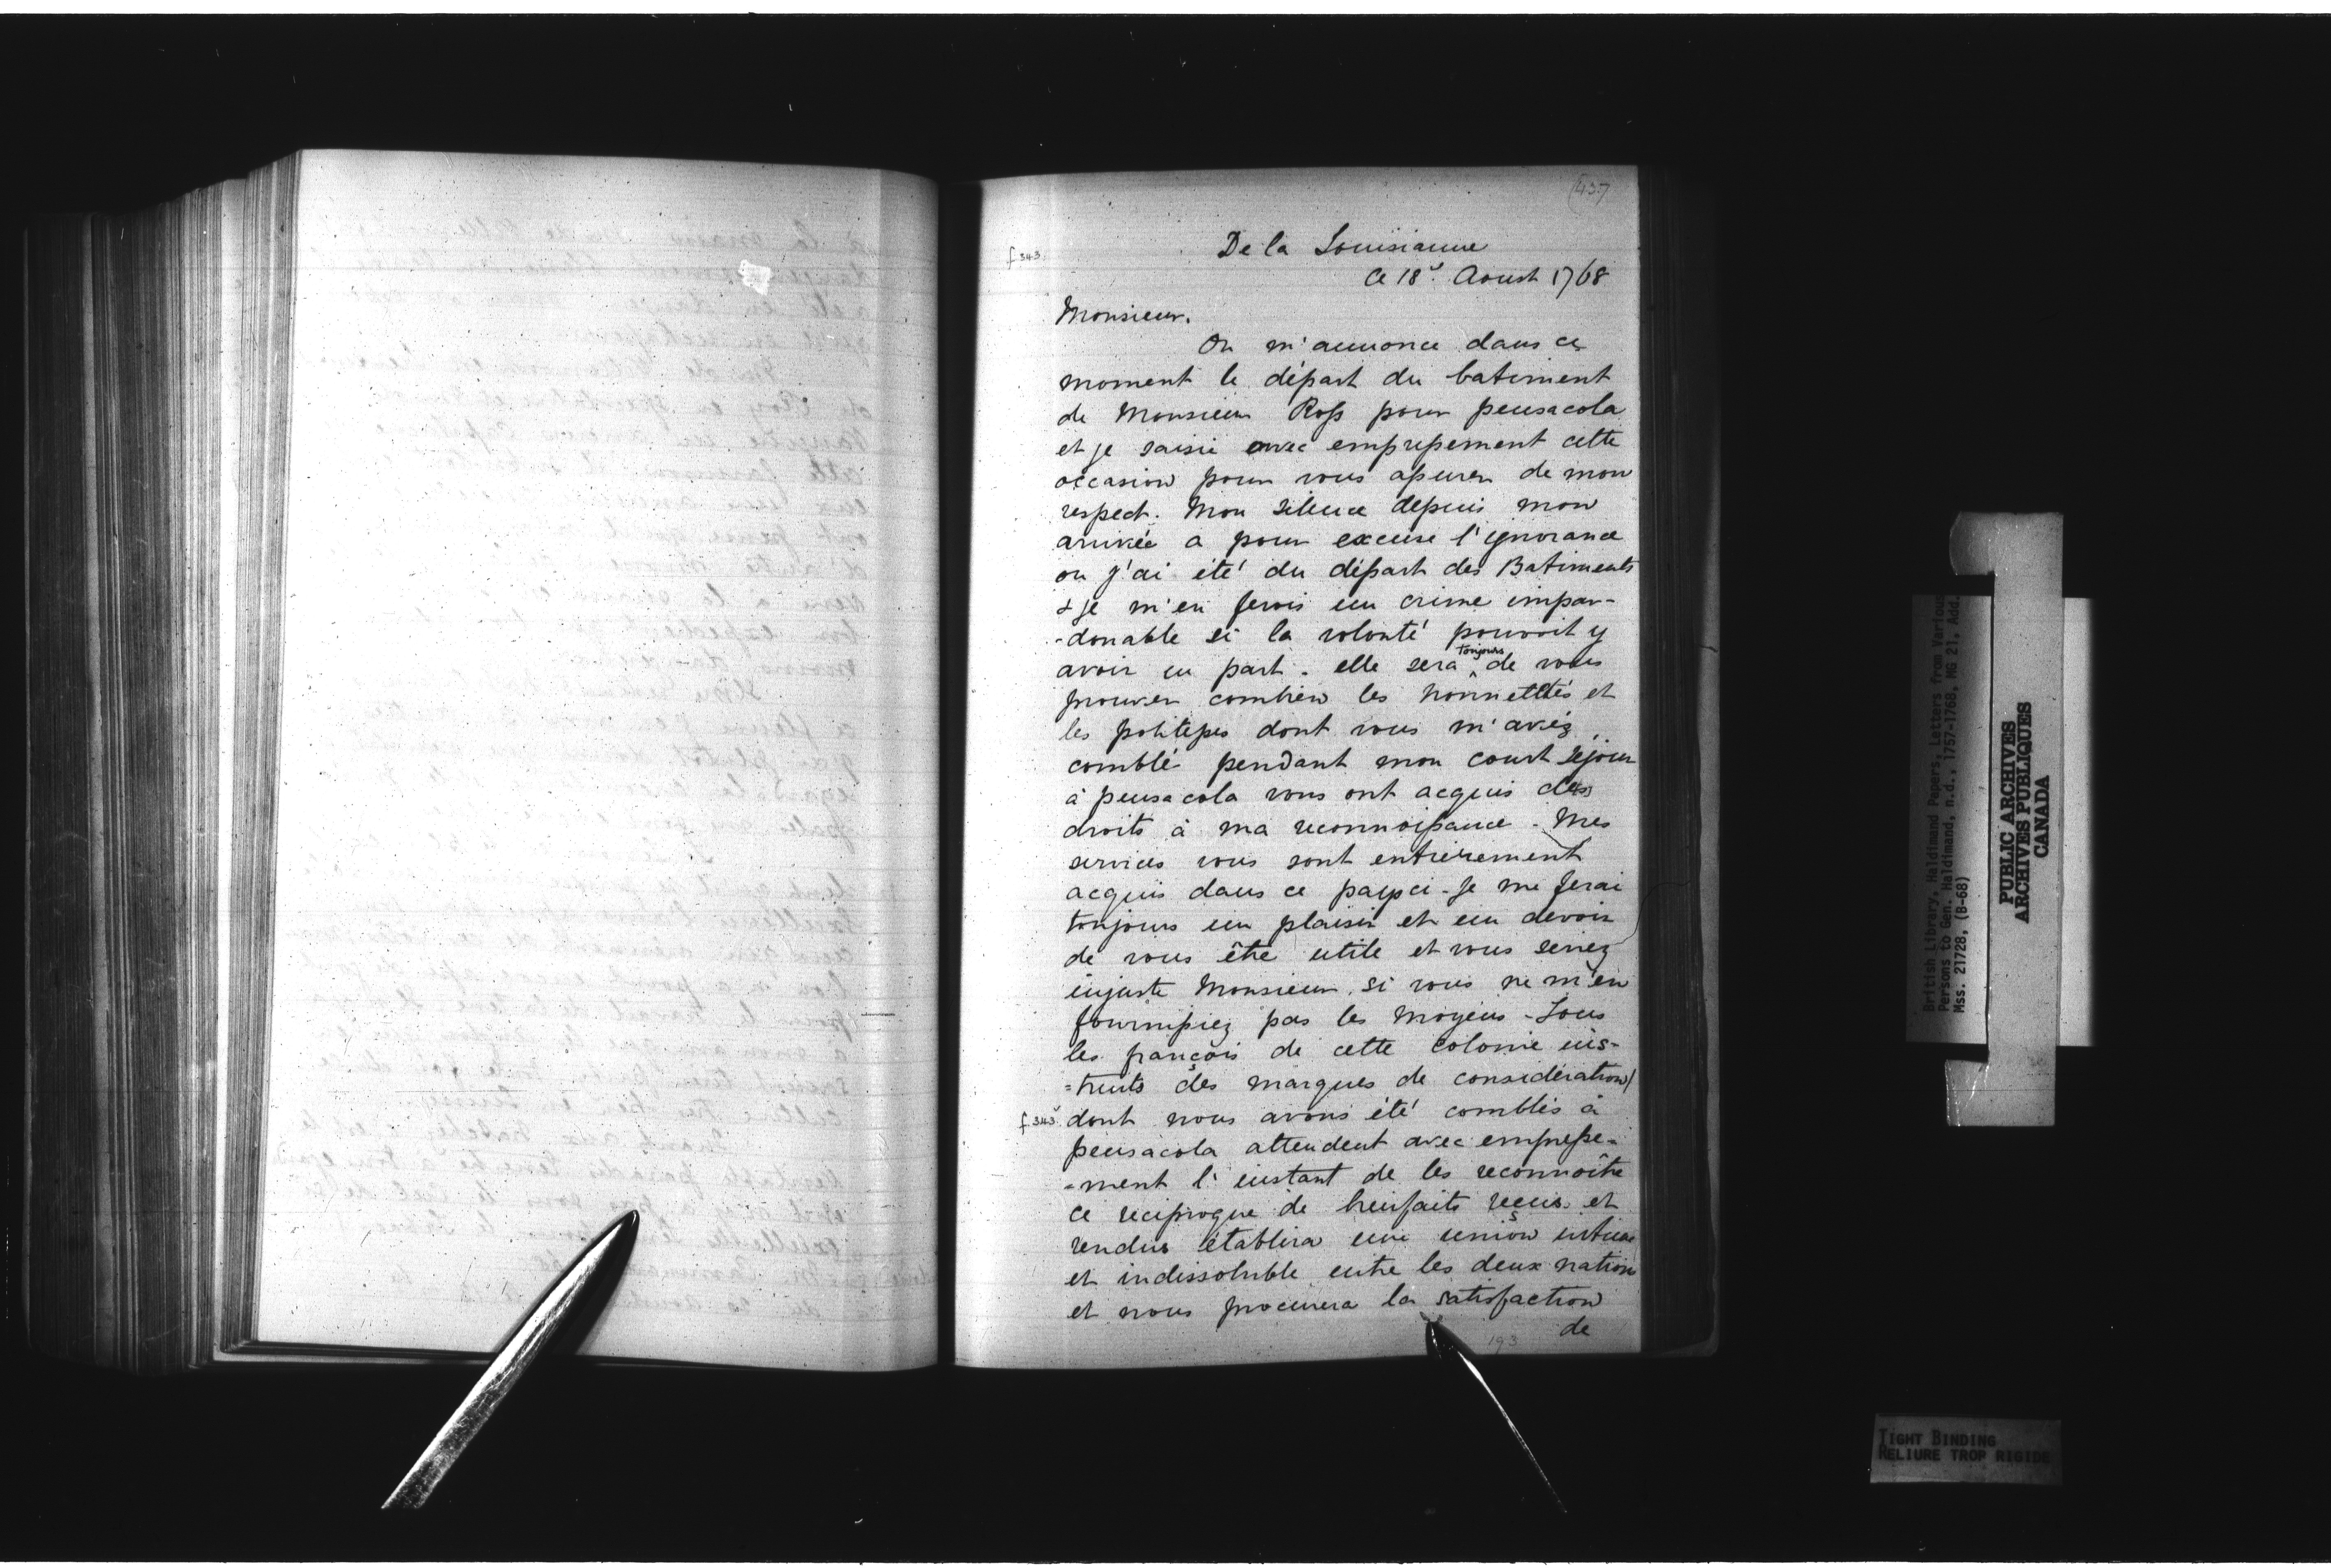 (437)
f 343.
De la Louisianne
Ce 18e. Aoust 1768
Monsieur.
On m'annonce dans ce
moment le départ du batiment
de Monsieur Ross pour pensacola
et je saisie avec empressement cette
occasion pour vous assurer de mon
respect. Mon silence depuis mon
arrivée a pour excuse l'ignorance
ou j'ai été du départ des Batiments
& je m'en ferois un crime impar-
-donable si la volonté pouvoit y
avoir eu part. elle sera toujours de vous
prouver combien les honnettetés et
les politesses dont vous m'avéz
comblé pendant mon court séjour
à pensacola vous ont acquis des
droits à ma reconnoissance. Mes
services vous sont entièrement
acquis dans ce paysci. Je me ferai
toujours un plaisir et un devoir
de vous être utile et vous seriez
injuste Monsieur, si vous ne m'en
fournissiez pas les moyens. Tous
les françois de cette Colonie ins-
=truits des marques de considération
f 343v dont nous avons été comblés à
pensacola attendent avec empresse-
-ment l'instant de les reconnoître
ce reciproque de bienfaits reçus et
rendus établira une union intime
et indissoluble entre les deux nations
et nous procurera la satisfaction
de
193
British Library, Haldimand Papers, Letters from Various
Persons to Gen. Haldimand, n.d., 1757-1768, MG 21, Add.
Mss. 21728, (B-68)
PUBLIC ARCHIVES
ARCHIVES PUBLIQUES
CANADA
TIGHT BINDING
RELIURE TROP RIGIDE